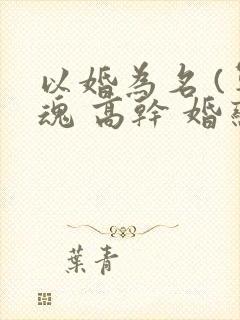 以婚為名(
魂 高幹 婚
葉青